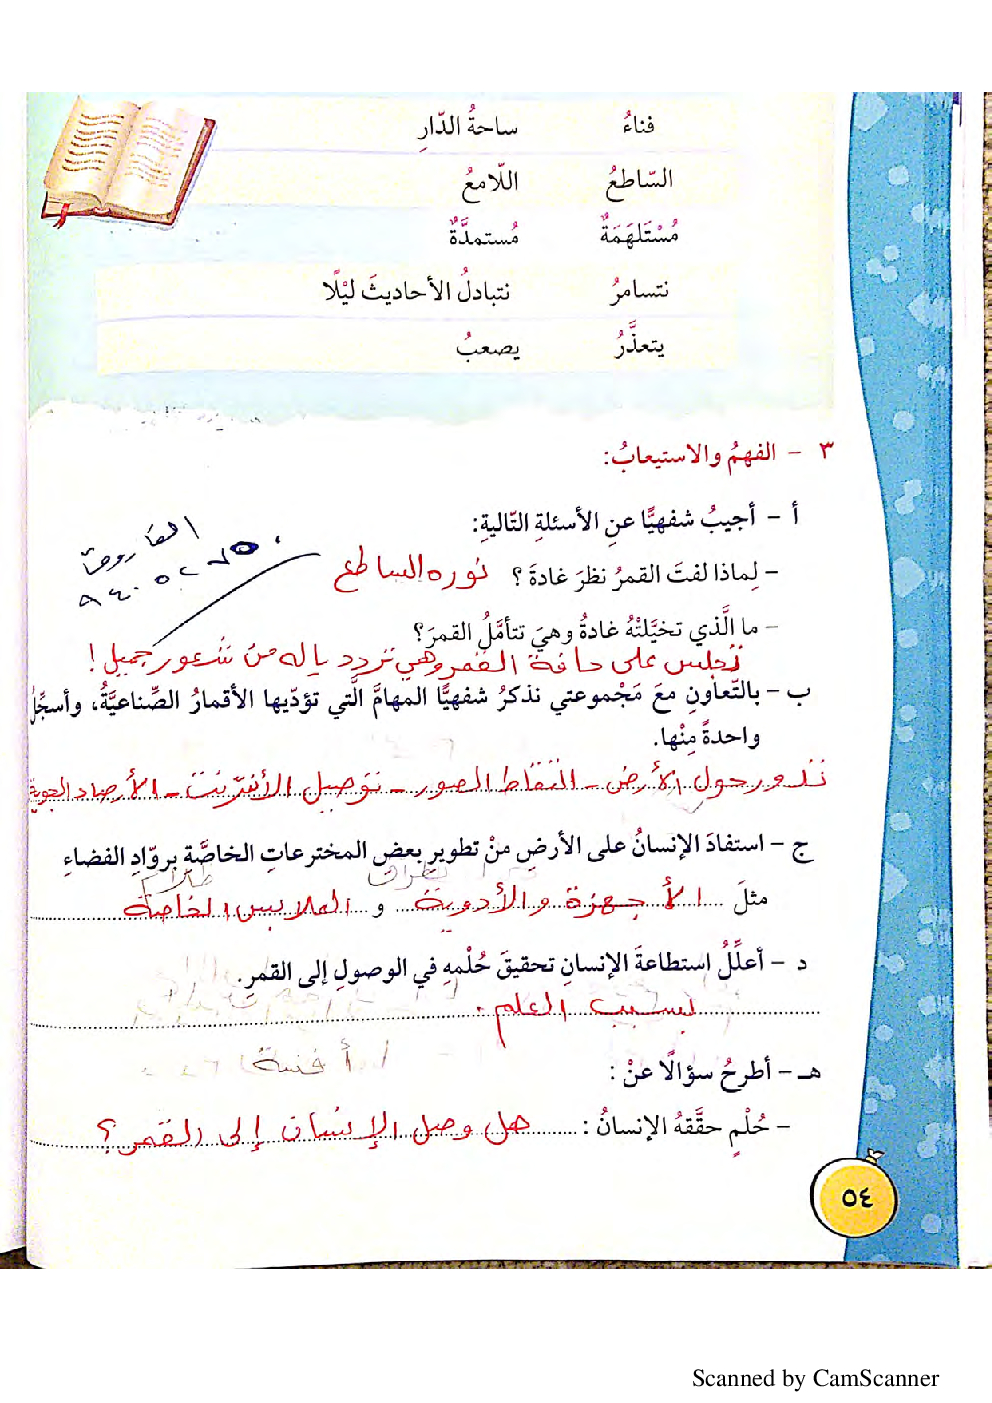 فناءُ ساحةُ الدّارِ
السّاطعُ اللّامعُ
مُسْتَلهَمَةٌ مُستمدَّةٌ
نتسامرُ نتبادلُ الأحاديثَ ليْلًا
يتعذَّرُ يصعبُ
٣ - الفهمُ والاستيعابُ:
أ - أجيبُ شفهيًّا عنِ الأسئلةِ التّاليةِ:
- لِماذا لفتَ القمرُ نظرَ غادةَ ؟ نوره الساطع
- ما الَّذي تخيَّلتْهُ غادةُ وهيَ تتأمَّلُ القمرَ؟
تجلس على حافة القمر وهي تردد ياله من شعور جميل !
ب - بالتّعاونِ معَ مَجْموعتي نذكرُ شفهيًّا المهامَّ الَّتي تؤدّيها الأقمارُ الصِّناعيَّةُ، وأسجِّلُ
واحدةً مِنْها.
تدور حول الأرض - التقاط الصور - توصيل الأنترنت - الأرصاد الجوية
ج - استفادَ الإنسانُ على الأرضِ منْ تطويرِ بعضِ المخترعاتِ الخاصَّةِ بروّادِ الفضاءِ
مثلَ ..... الأجهزة والأدوية ..... و ..... الملابس الخاصة .....
د - أعلِّلُ استطاعةَ الإنسانِ تحقيقَ حُلْمِهِ في الوصولِ إلى القمرِ.
بسبب العلم .
هـ - أطرحُ سؤالًا عنْ :
- حُلْمٍ حقَّقهُ الإنسانُ : ..... هل وصل الإنسان إلى القمر ؟
٥٤
Scanned by CamScanner